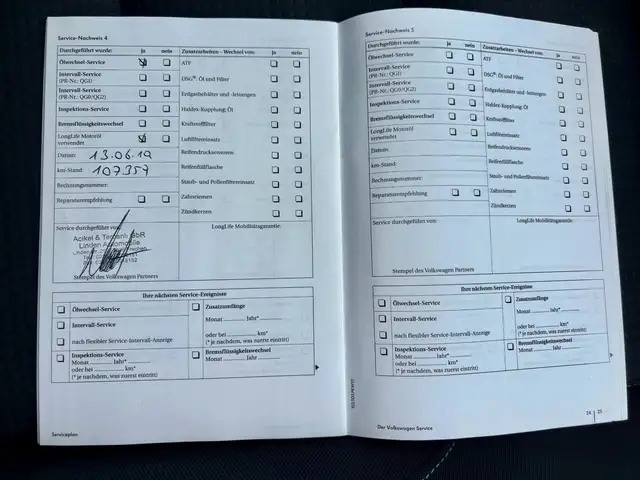 Service-Nachweis 4
Durchgeführt wurde: ja nein
Ölwechsel-Service
Intervall-Service
(PR-Nr.: QG1)
Intervall-Service
(PR-Nr.: QG0/QG2)
Inspektions-Service
Bremsflüssigkeitswechsel
LongLife Motoröl
verwendet
Datum: 13.06.19
km-Stand: 107357
Rechnungsnummer:
Reparaturempfehlung
Zusatzarbeiten - Wechsel von: ja nein
ATF
DSG®: Öl und Filter
Erdgasbehälter und -leitungen
Haldex-Kupplung: Öl
Kraftstofffilter
Luftfiltereinsatz
Reifendrucksensoren
Reifenfüllflasche
Staub- und Pollenfiltereinsatz
Zahnriemen
Zündkerzen
Service durchgeführt von:
GbR
Linden Automobile
Stempel des Volkswagen Partners
LongLife Mobilitätsgarantie:
Ihre nächsten Service-Ereignisse
Ölwechsel-Service
Intervall-Service
nach flexibler Service-Intervall-Anzeige
Inspektions-Service
Monat Jahr*
oder bei km*
(* je nachdem, was zuerst eintritt)
Zusatzumfänge
Monat Jahr*
oder bei km*
(* je nachdem, was zuerst eintritt)
Bremsflüssigkeitswechsel
Monat Jahr
Serviceplan
Service-Nachweis 5
Durchgeführt wurde: ja nein
Ölwechsel-Service
Intervall-Service
(PR-Nr.: QG1)
Intervall-Service
(PR-Nr.: QG0/QG2)
Inspektions-Service
Bremsflüssigkeitswechsel
LongLife Motoröl
verwendet
Datum:
km-Stand:
Rechnungsnummer:
Reparaturempfehlung
Zusatzarbeiten - Wechsel von: ja nein
ATF
DSG®: Öl und Filter
Erdgasbehälter und -leitungen
Haldex-Kupplung: Öl
Kraftstofffilter
Luftfiltereinsatz
Reifendrucksensoren
Reifenfüllflasche
Staub- und Pollenfiltereinsatz
Zahnriemen
Zündkerzen
Service durchgeführt von:
Stempel des Volkswagen Partners
LongLife Mobilitätsgarantie:
Ihre nächsten Service-Ereignisse
Ölwechsel-Service
Intervall-Service
nach flexibler Service-Intervall-Anzeige
Inspektions-Service
Monat Jahr*
oder bei km*
(* je nachdem, was zuerst eintritt)
Zusatzumfänge
Monat Jahr*
oder bei km*
(* je nachdem, was zuerst eintritt)
Bremsflüssigkeitswechsel
Monat Jahr
Der Volkswagen Service
24 25